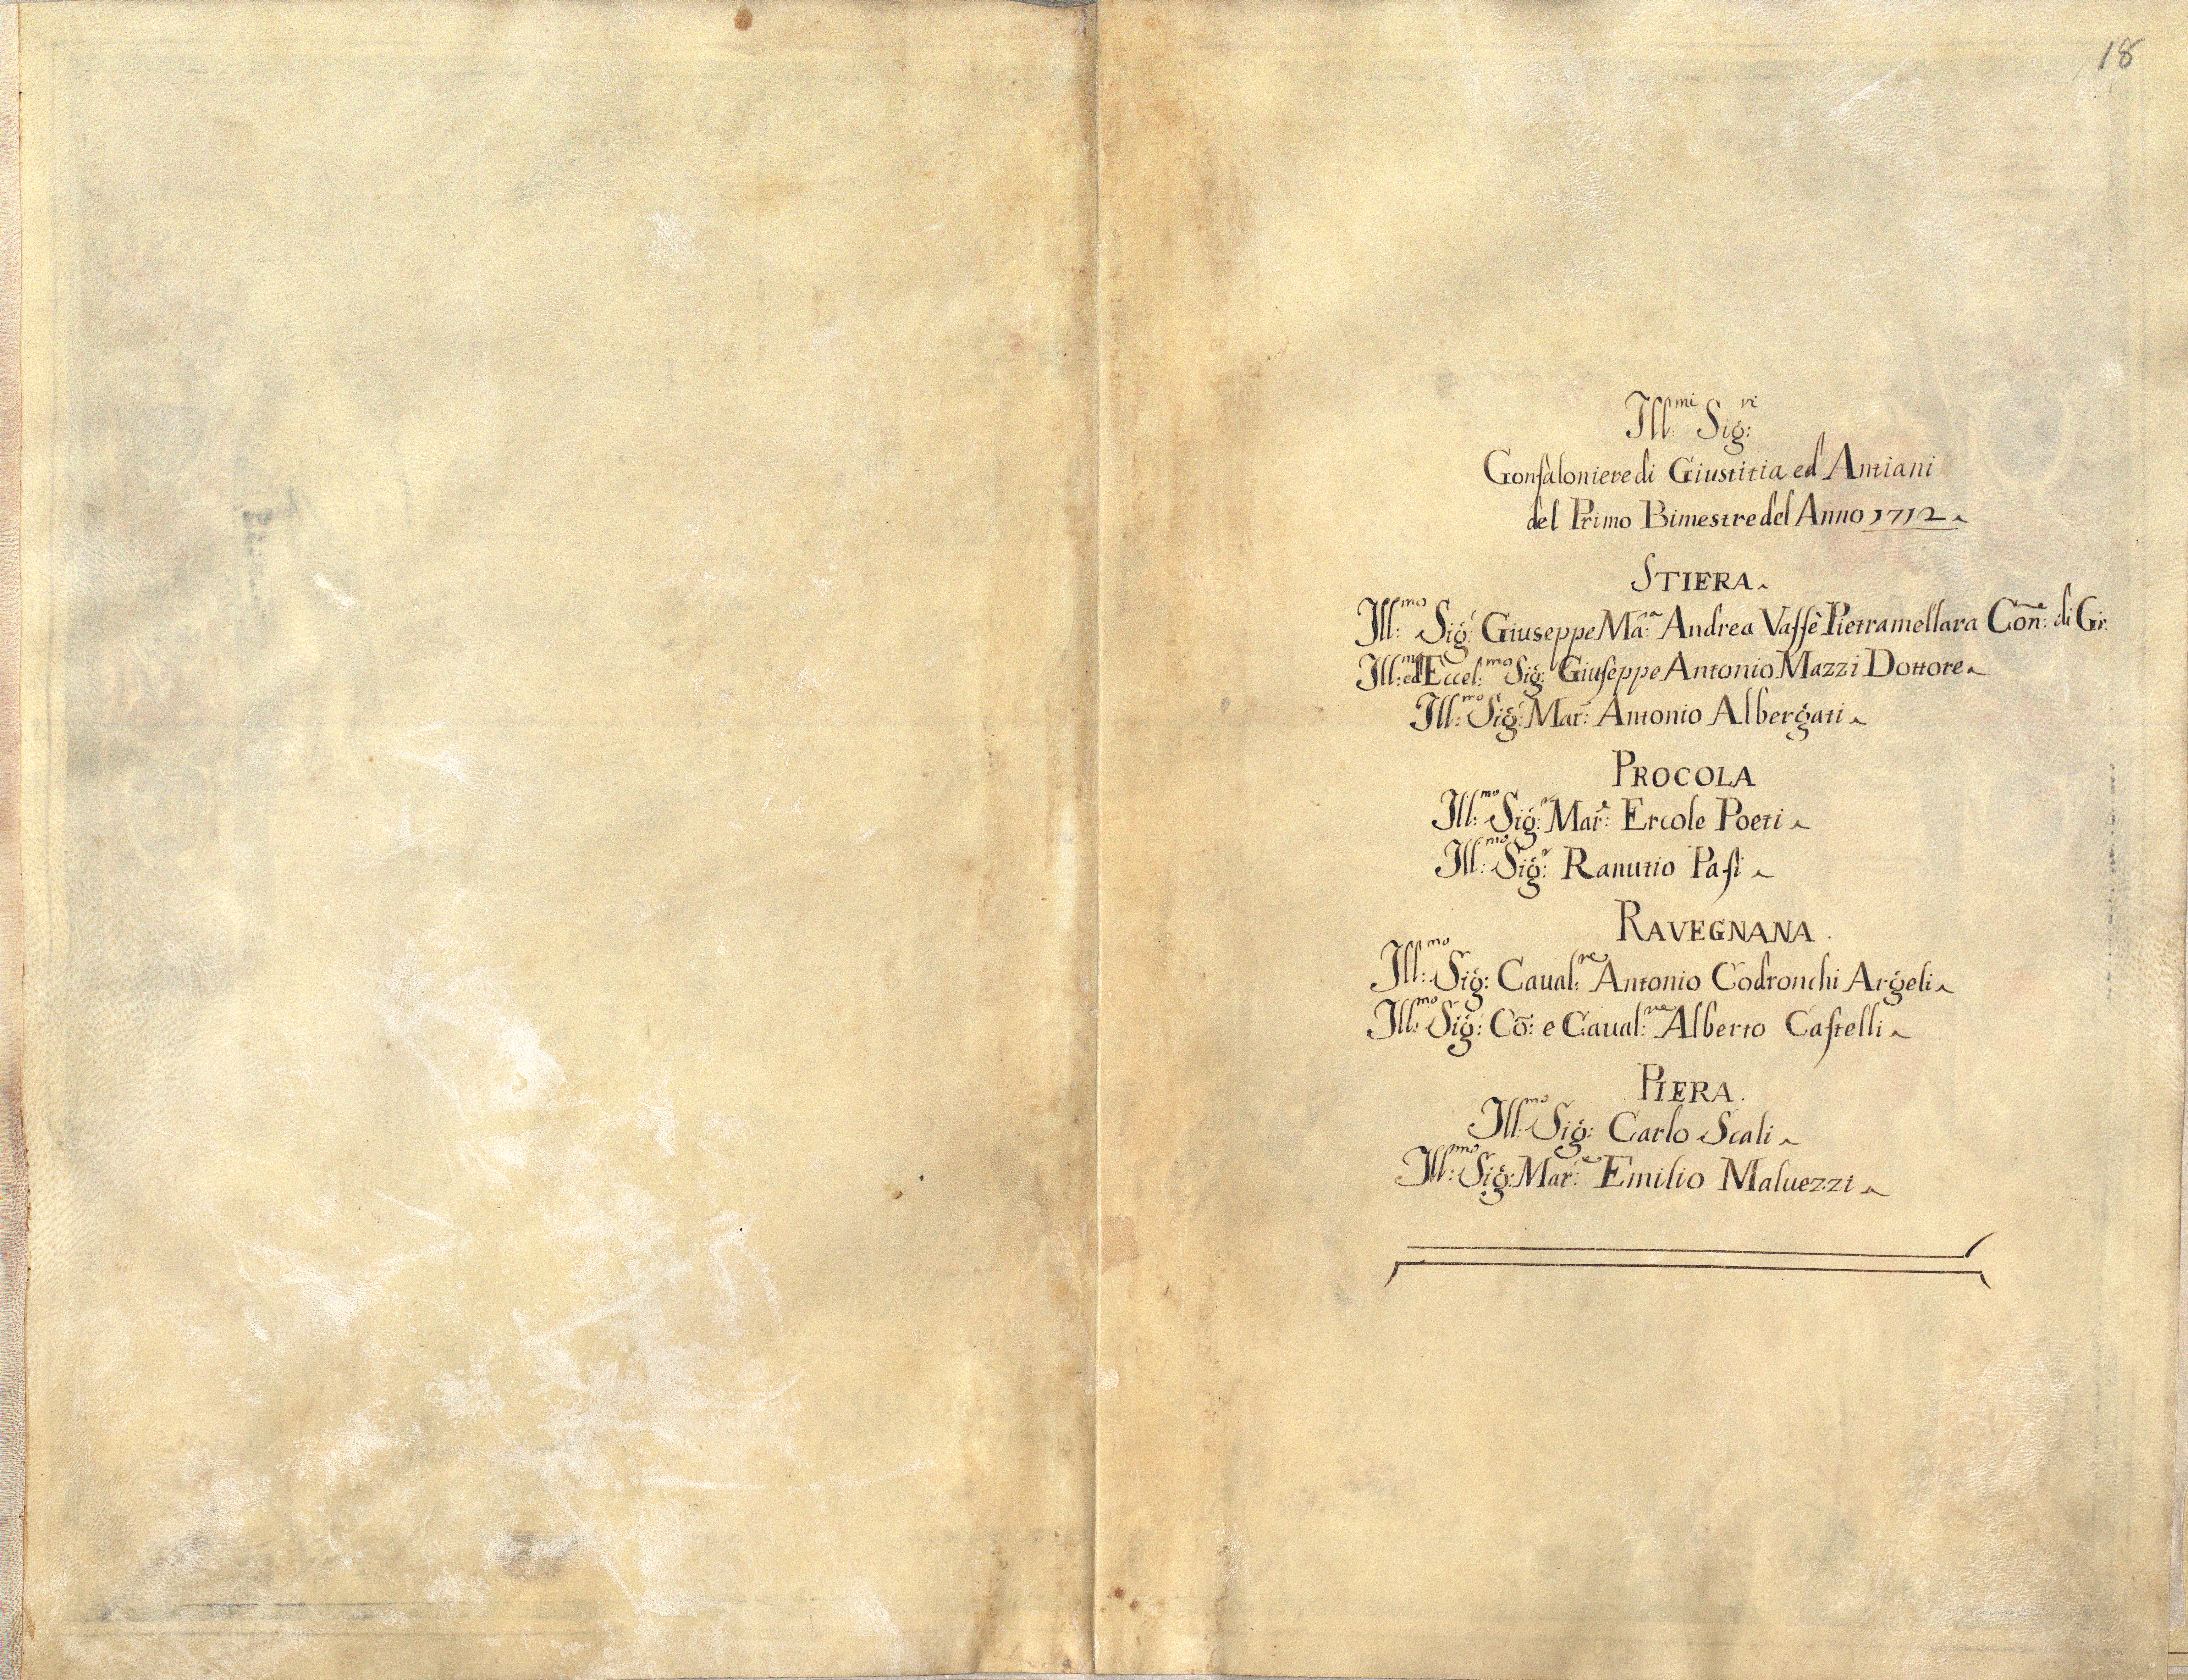 18
Ill:mi Sig:ri
Gonfaloniere di Giustitia ed Antiani
del Primo Bimestre del Anno 1712
STIERA
Ill:mo Sig: Giuseppe Ma:ria Andrea Vassè Pietramellara Con:ne di G:
Ill:mo ed Eccel:mo Sig: Giuseppe Antonio Mazzi Dottore
Ill:mo Sig: Mar: Antonio Albergati
PROCOLA
Ill:mo Sig:r Mar:e Ercole Poeti
Ill:mo Sig:r Ranutio Pasi
RAVEGNANA.
Ill:mo Sig: Caual:re Antonio Codronchi Argeli
Ill:mo Sig: Cō: e Caual:re Alberto Castelli
PIERA.
Ill:mo Sig: Carlo Scali
Ill:mo Sig: Mar:e Emilio Maluezzi